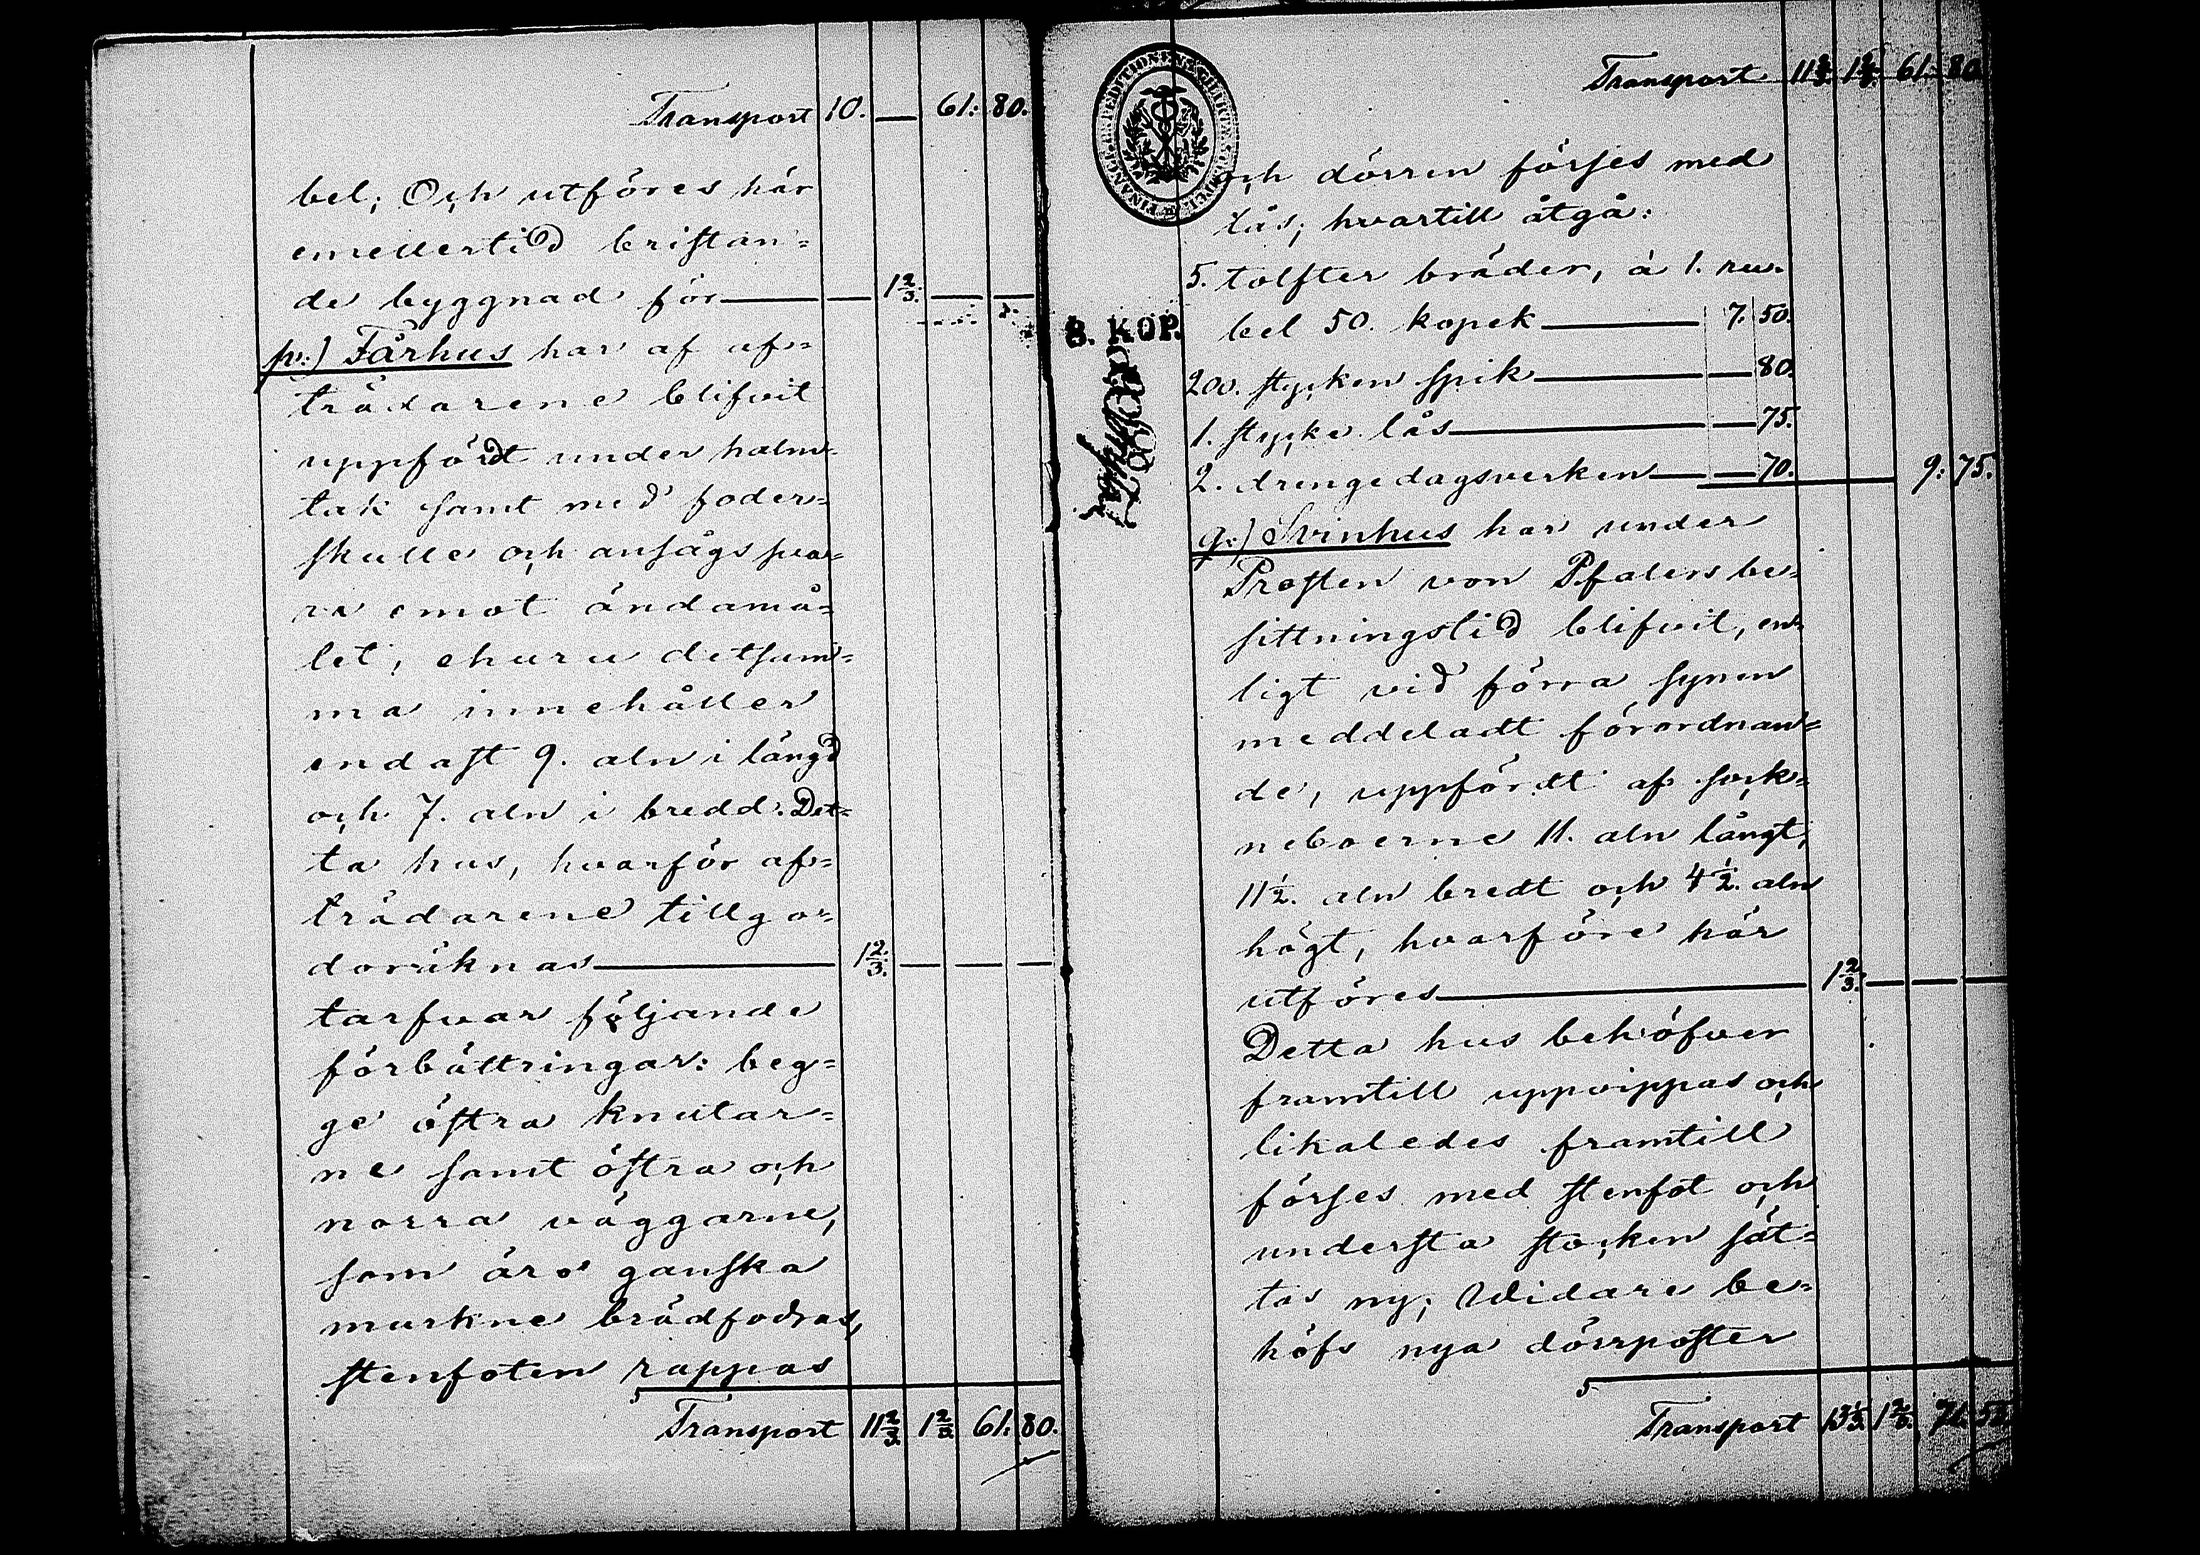 Transport 10. — 61: 80.
bel; Och utföres här
emellertid bristan-
de byggnad för — — 1 2/3. — —
p:) Fårhus har af af-
trädarene blifvit
uppfördt under halm-
tak samt med foder-
skulle och ansågs sva-
ra emot ändamå-
let, ehuru detsam-
ma innehåller
endast 9. aln i längd
och 7. aln i bredd. Det-
ta hus, hvarför af-
trädarene tillgo-
doräknas — 1 2/3. — — —
tarfvar följande
förbättringar: beg-
ge östra knutar-
ne samt östra och
norra väggarne,
som äro ganska
murkne brädfodras,
stenfoten rappas
Transport 11 2/3. 1 2/3. 61: 80.
Transport 11 2/3. 1 2/3. 61: 80.
och dörren förses med
lås; hvartill åtgå:
5. tolfter bräder, à 1. ru-
bel 50. kopek — 7. 50.
8. KOP.
200. stycken spik — — 80.
1. stycke lås — — 75.
2. drengedagsverken — — 70. 9: 75.
q:) Svinhus har under
Prosten von Pfalers be-
sittningstid blifvit, en-
ligt vid förra synen
meddeladt förordnan-
de, uppfördt af sock-
neboerne 11. aln långt,
11 1/2. aln bredt och 4 1/2. aln
högt, hvarföre här
utföres — 1 2/3. — — —
Detta hus behöfver
framtill uppvippas och
likaledes framtill
förses med stenfot och
understa stocken sät-
tas ny; Widare be-
höfs nya dörrposter
Transport 13 1/3. 1 2/3. 71: